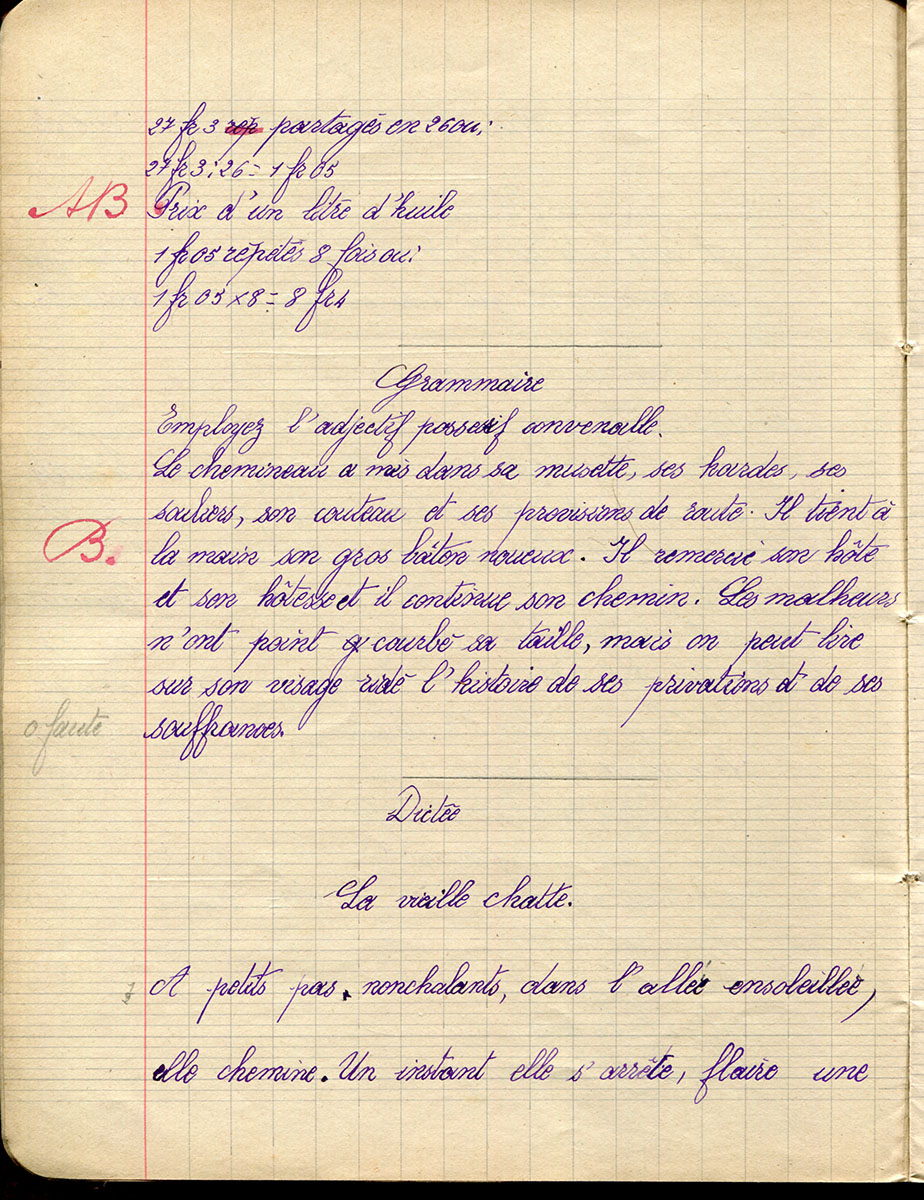 27 fr 3 rep partagés en 26 ou :
27 fr 3 : 26 = 1 fr 05
AB Prix d'un litre d'huile
1 fr 05 répétés 8 fois ou :
1 fr 05 x 8 = 8 fr 4
Grammaire
Employez l'adjectif possesif convenable.
Le chemineau a mis dans sa musette, ses hardes, ses
souliers, son couteau et ses provisions de route. Il tient à
B. la main son gros bâton noueux. Il remercie son hôte
et son hôtesse et il continue son chemin. Les malheurs
n'ont point courbé sa taille, mais on peut lire
sur son visage ridé l'histoire de ses privations et de ses
0 faute souffrances.
Dictée
La vieille chatte.
A petits pas, nonchalants, dans l'allée ensoleillée,
elle chemine. Un instant elle s'arrête, flaire une